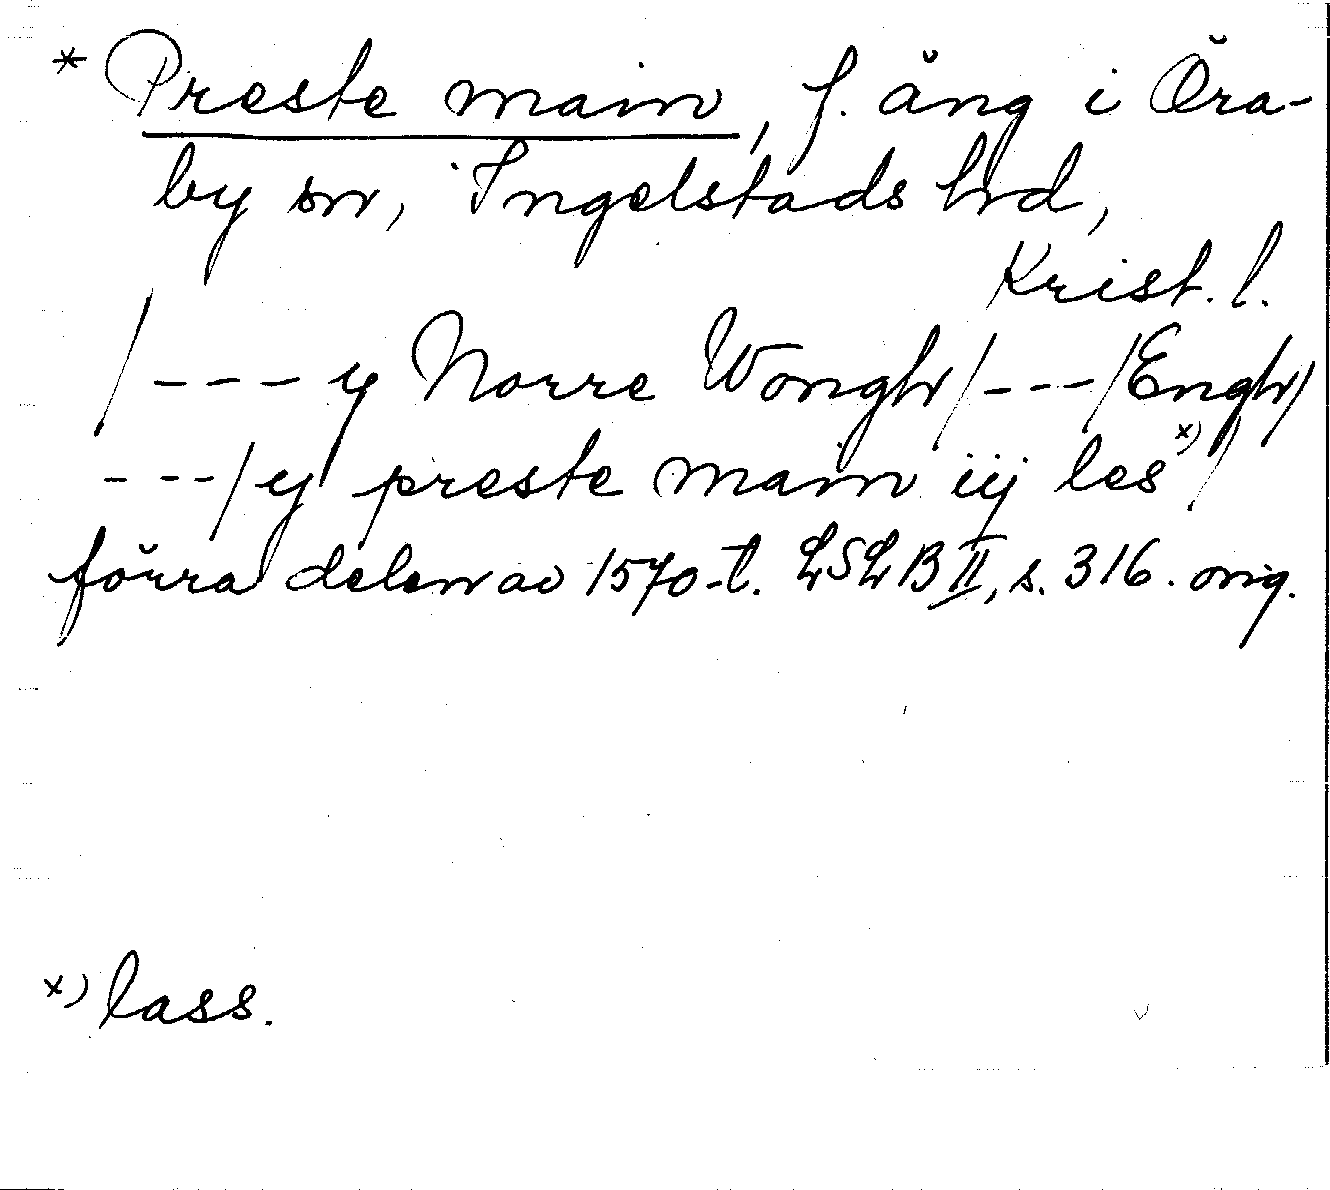 * Preste main, f. äng i Öra-
by sn, Ingelstads hrd,
Krist. l.
/---y Norre Wongh/---/Engh/
---/y preste main iij les x)/
förra delen av 1570-t. LSLB II, s. 316. orig.
x) lass.